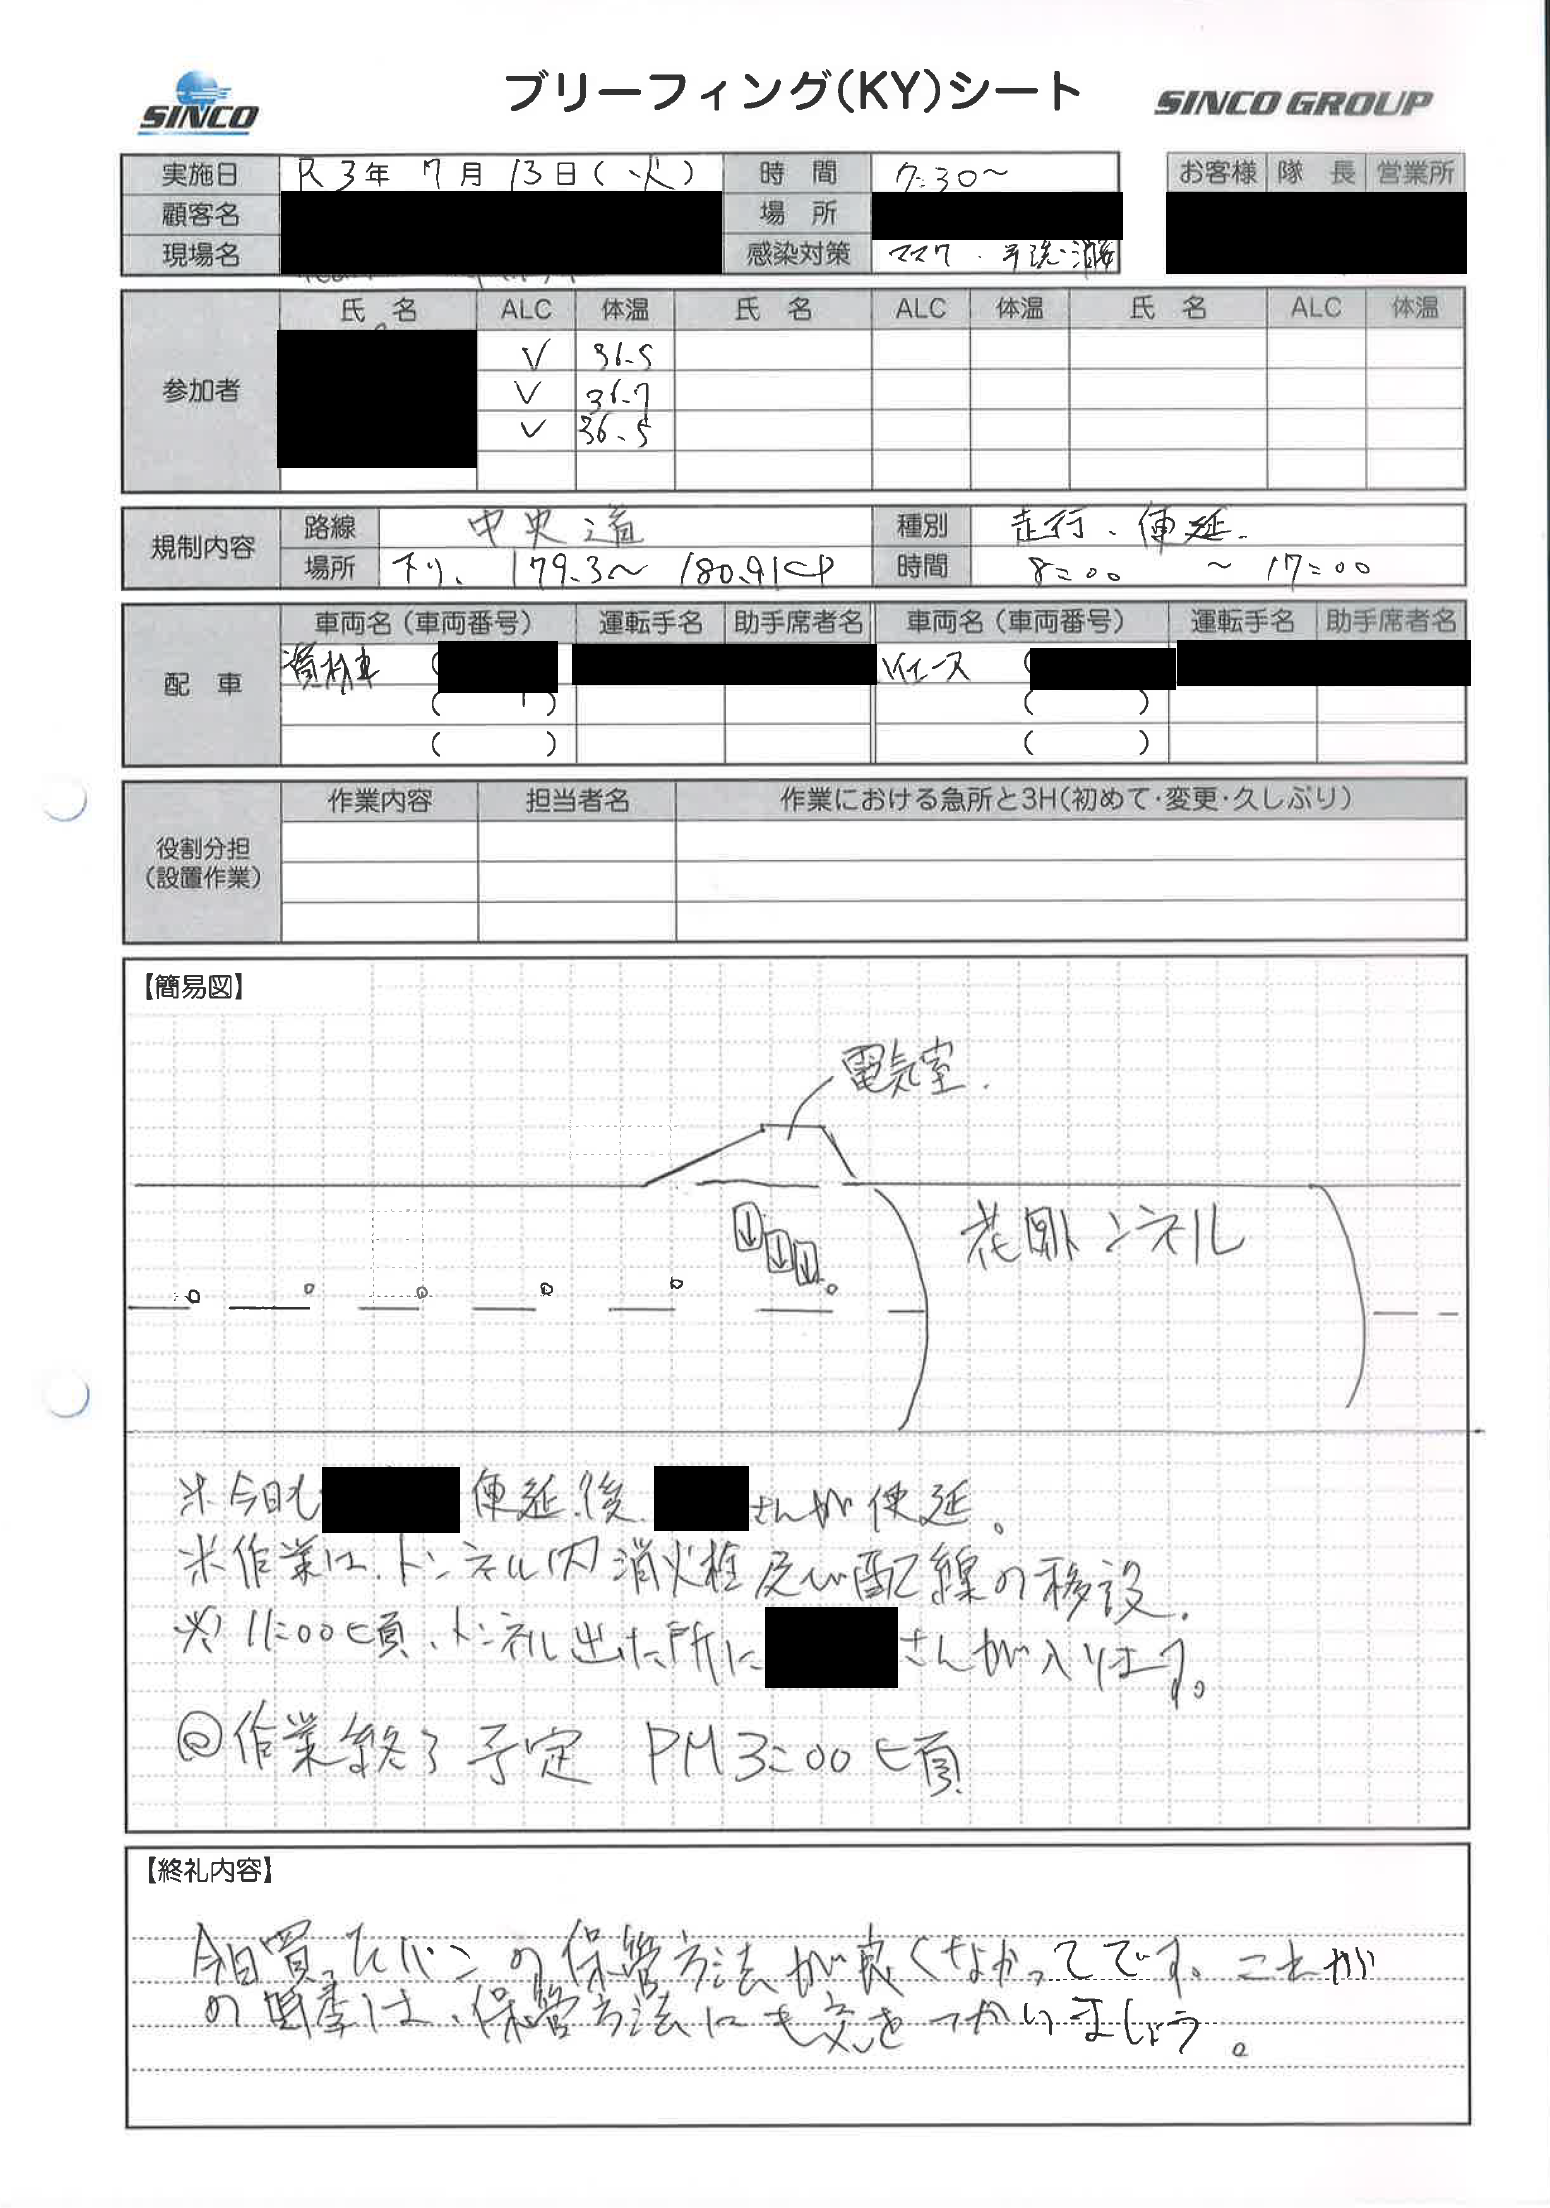 SINCO
ブリーフィング(KY)シート
SINCO GROUP
実施日 R3年 7月 13日(火) 時 間 7:30～
お客様 隊 長 営業所
顧客名 場 所
現場名 感染対策 マスク・手洗・消毒
参加者
氏 名 ALC 体温 氏 名 ALC 体温 氏 名 ALC 体温
V 36.5
V 36.7
V 36.5
規制内容
路線 中央道 種別 走行、便延.
場所 下り、179.3～180.91KP 時間 8:00 ～ 17:00
配 車
車両名(車両番号) 運転手名 助手席者名 車両名(車両番号) 運転手名 助手席者名
資材車 ( ハイエース (
( ) ( )
( ) ( )
役割分担
(設置作業)
作業内容 担当者名 作業における急所と3H(初めて・変更・久しぶり)
【簡易図】
電気室.
トンネル
※今日も 便延後. さんが便延。
※作業は、トンネル内消火栓及び配線の移設.
※11:00頃、トンネル出た所に さんが入ります。
◎作業終了予定 PM3:00頃
【終礼内容】
今日買ったパンの保管方法が良くなかってです。これから
の夏季は、保管方法にも気をつかいましょう。